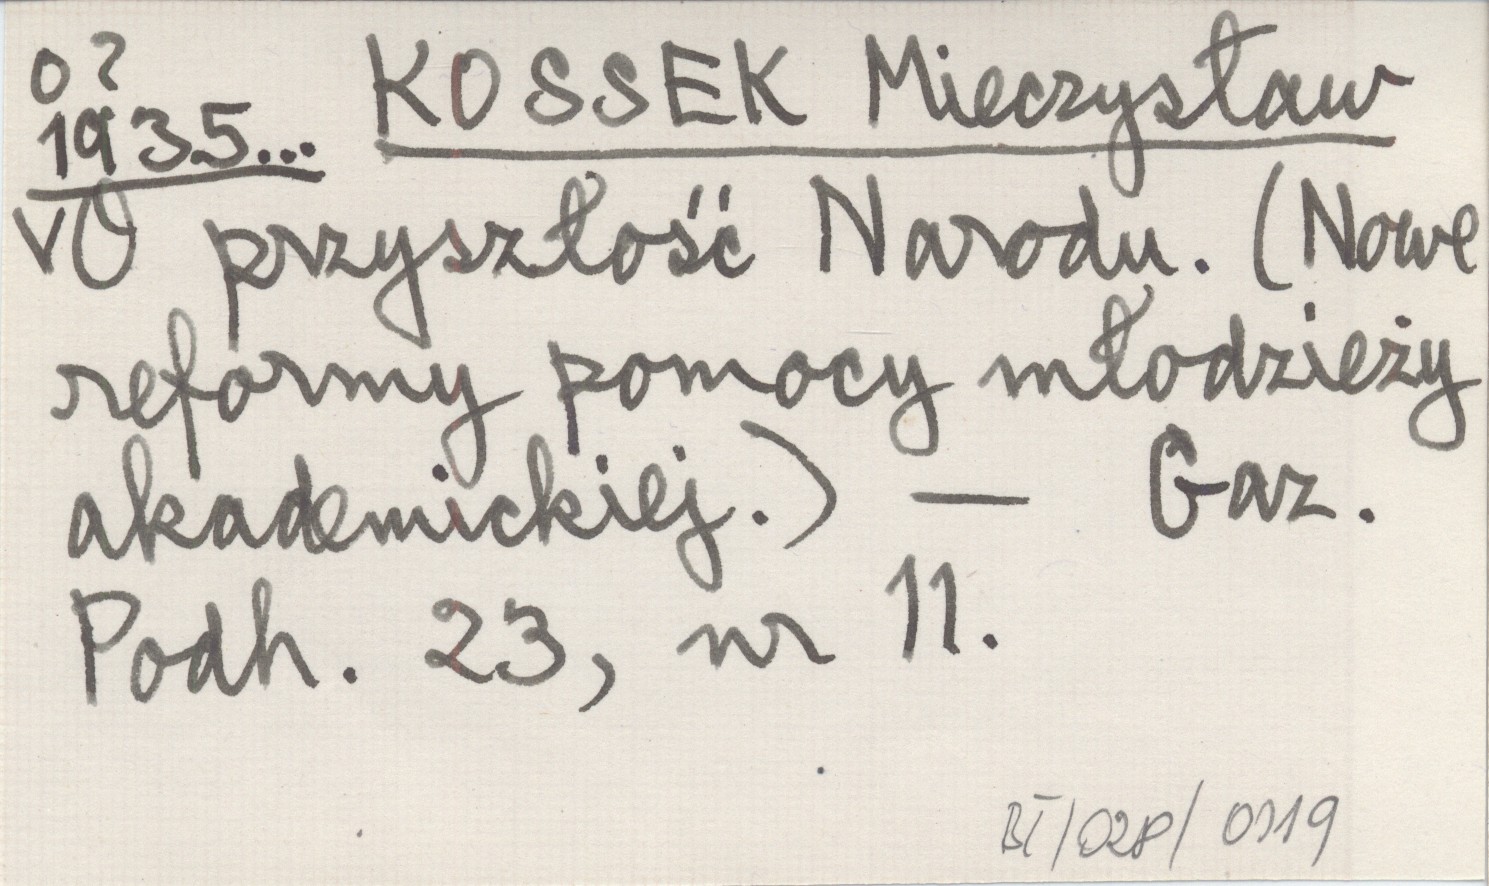 0 ?
1935... KOSSEK Mieczysław
VO przyszłość Narodu. (Nowe
reformy pomocy młodzieży
akademickiej.) — Gaz.
Podh. 23, nr 11.
BT/028/